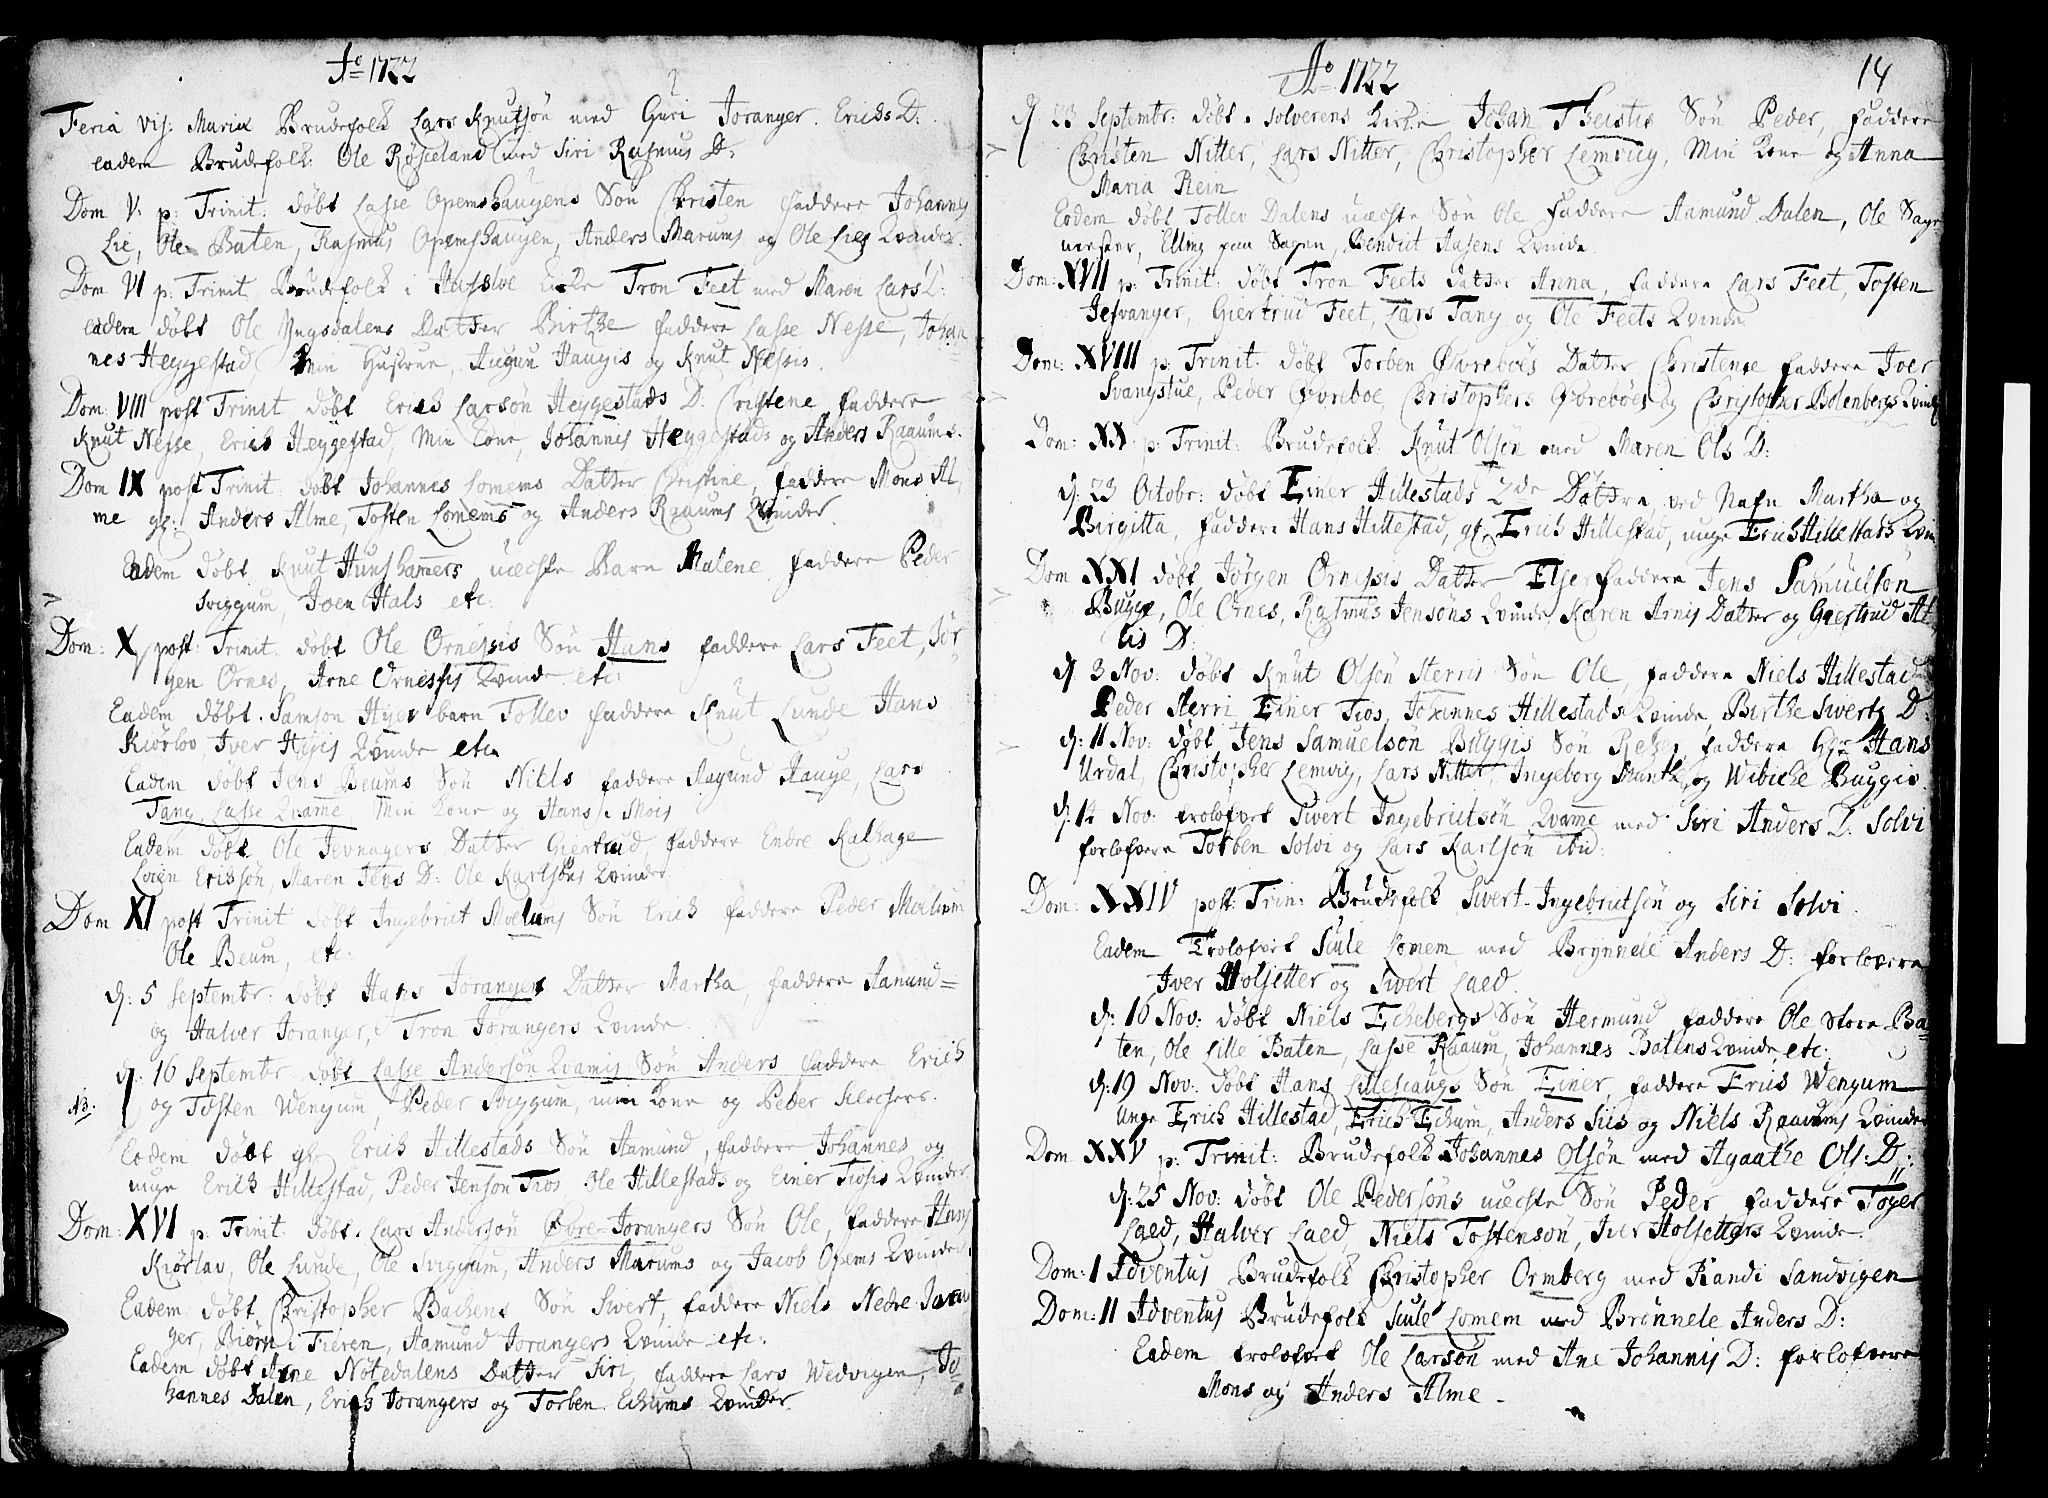 Ao 1722
Feria vis: Mariæ Brudefolk Lars Knutsøn med Guri Joranger. Erichs D.
eadem Brudefolk Ole Røseland med Siri Rasmus D.
Dom V. p: Trinit. døbt Lasse Opemshaugens Søn Christen faddere Johannes
Lie, Ole Baten, Rasmus Opemshaugen, Anders Marums og Ole Lies Qvinder.
Dom VI p: Trinit Brudefolk i Hafsloe Tron Feet med Maren Lars D:
eadem døbt Ole Yngsdalens Datter Birthe faddere Lasse Nesse, Johan
nes Heggestad, Min Hustrue, Haugis og Knut Nessis.
Dom: VIII post Trinit døbt Erich Larsøn Heggestads D. Christene, faddere
Knut Nesse, Erich Heggestad, Min Kone, Johannis Heggestads og Anders Raaums.
Dom IX post Trinit: døbt Johannes Lomems Datter Christine, faddere Mons Al-
me gl: Anders Alme, Tosten Lomems og Anders Raaums Qvinder.
Eadem døbt Knut Hunshamers uæchte Barn Malene faddere Peder
Sviggum, Joen Hals etc:
Dom: X post: Trinit. døbt Ole Ornessis Søn Hans faddere Lars Feet, Jør
gen Ornes, Arne Ornessis Qvinde etc:
Eadem døbt Samson barn Tollev faddere Knut Lunde Hans
Kiørlov, Iver Qvinde etc.
Eadem døbt Jens Beums Søn Niels faddere Aagund Hauge, Lars
Tang, Lasse Qvame, Min Kone og Hans Mois
Eadem døbt Ole Jevnagers Datter Giertrud faddere Endre Kalhage
Erichsøn, Maren Jens D: Ole Karlsøns Qvinder
Dom XI post Trinit døbt Ingebrict Moelums Søn Erich faddere Peder Moelum
Ole Beum, etc:
d: 5 Septembr: døbt Hans Jorangers Datter Martha, faddere Aamund=
og Halver Joranger, Tron Jorangers Qvinde.
d: 16 Septembr døbt Lasse Andersøn Qvamis Søn Anders faddere Erich
NB. og Tosten Wengum, Peder Sviggum, min Kone og Peder Klochers.
Eodem døbt gl: Erich Hillestads Søn Aamund, faddere Johannes og
unge Erich Hillestad, Peder Jensøn Tios, Ole Hillestads og Einer Tiosis Qvinder.
Dom: XVI p. Trinit. døbt Lars Andersøn Øvre-Jorangers Søn Ole, faddere Hans
Kiørlav, Ole Lunde, Ole Sviggum, Anders Marums og Jacob Opems Qvinder.
Eadem døbt Christopher Bachens Søn Sivert, faddere Niels Nedre Joran
ger, Biørn i Fieren, Aamund Jorangers Qvinde etc:
Eadem døbt Arne Nøtedalens Datter Siri, faddere Lars Wedvigen, Jo
hannes Dalen, Erich Jorangers og Torben Echums Qvinder.
Ao 1722
14
d: 23 Septembr: døbt i Solverens Kirke Johan Theistes Søn Peder, faddere
Christen Nitter, Lars Nitter, Christopher Lemvig, Min Kone og Anna
Maria Rein
Eodem døbt Tollev Dalens uæchte Søn Ole faddere Aamund Dalen, Ole Sogn
Elling paa Sogen, Bendict Aasens Qvinde.
Dom: XVII p: Trinit: døbt Tron Feets datter Anna, faddere Lars Feet, Tosten
Jesvanger, Giertrud Feet, Lars Tang og Ole Feets Qvinde
Dom: XVIII p: Trinit. døbt Torben Øvreboes Datter Christense faddere Iver
Svangstue, Peder Øvreboe, Christophers Øvreboes og Christopher Bolenbergs Qvinde
Dom: XX p: Trinit: Brudefolk Knut Olsøn med Maren Ols D:
d: 23 Octobr: døbt Einer Hillestads 2de Døttre ved Nafn Martha og
Birgitta, faddere Hans Hillestad, gl: Erich Hillestad, unge Erich Hillestads Qvin
Dom XXI døbt Jørgen Ornessis Datter Else faddere Jens Samuelsøn
Bugge, Ole Ornes, Rasmus Jensøns Qvinde, Karen Arnis Datter og Giertrud At
lis D.
d: 3 Nov: døbt Knut Olsøn Sterris Søn Ole, faddere Niels Hillestad
Peder Sterri, Einer Tios, Johannes Hillestads Qvinde, Birthe Siverts D.
d: 11 Nov: døbt Jens Samuelsøn Buggis Søn faddere Hr Hans
Urdal, Christopher Lemvig, Lars Nitter, Ingeborg Munth, og Wibiche Buggis.
d: 14 Nov: trolofvet Sivert Ingebrictsøn Qvame med Siri Anders D. Solvi
forlofvere Torben Solvi og Lars Karlsøn ibid:
Dom: XXIV post: Trin: Brudefolk Sivert Ingebrictsøn og Siri Solvi.
Eadem Trolofvet Scule Lomem med Brynnele Anders D: forlovere
Iver Holsetter og Sivert Laed.
d: 16 Nov: døbt Niels Echebergs Søn Hermund faddere Ole Store Ba-
ten, Ole Lille Baten, Lasse Raaum, Johannes Batens Qvinde, etc:
d: 19 Nov: døbt Hans Lillehaugs Søn Einer, faddere Erich Wengum
Unge Erich Hillestad, Erich Echum, Anders Siis og Niels Raaums Qvinder
Dom XXV p: Trinit: Brudefolk Johannes Olsøn med Agaathe Ols: D:
d: 25 Nov: døbt Ole Pedersøns uæchte Søn Peder faddere Toger
Laed, Halver Laed, Niels Tostensøn, Iver Holsetters Qvinde.
Dom: I Adventus Brudefolk Christopher Ormberg med Randi Sandvigen
Dom: II Adventus Brudefolk Scule Lomem med Brønnele Anders D:
Eadem trolofvet Ole Larsøn med Ane Johannis D: forlofvere
Mons og Anders Alme.